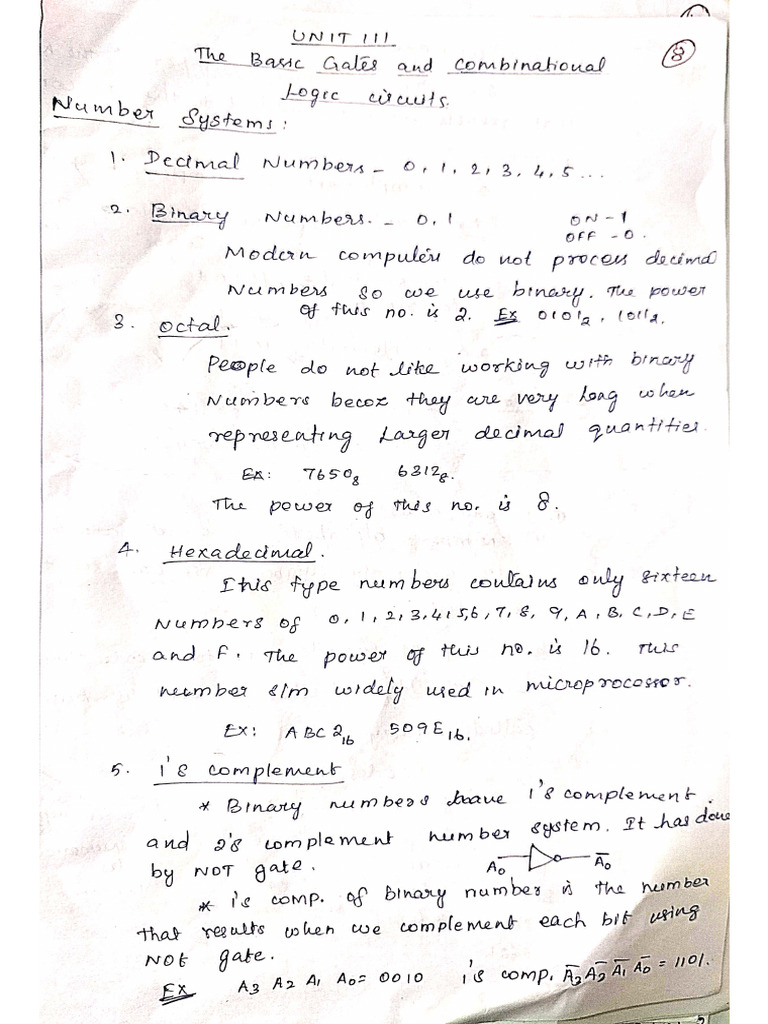 UNIT III
8
The Basic Gates and Combinational
Logic circuits.
Number Systems:
1. Decimal Numbers - 0, 1, 2, 3, 4, 5 ...
2. Binary Numbers. - 0, 1 ON - 1
OFF - 0.
Modern computers do not process decimal
Numbers so we use binary. The power
of this no. is 2. Ex 0101₂, 1011₂.
3. Octal.
People do not like working with binary
Numbers becoz they are very long when
representing Larger decimal quantities.
Ex: 7650₈ 6312₈.
The power of this no. is 8.
4. Hexadecimal.
This type numbers contains only sixteen
Numbers of 0, 1, 2, 3, 4, 5, 6, 7, 8, 9, A, B, C, D, E
and F. The power of this no. is 16. This
number s/m widely used in microprocossor.
Ex: ABC2₁₆ 509E₁₆.
5. 1's complement
* Binary numbers have 1's complement
and 2's complement number system. It has done
by NOT gate. A₀ A̅₀
* 1's comp. of binary number is the number
that results when we complement each bit using
NOT gate.
Ex A3 A2 A1 A0 = 0010 1's comp. A̅₃ A̅₂ A̅₁ A̅₀ = 1101.